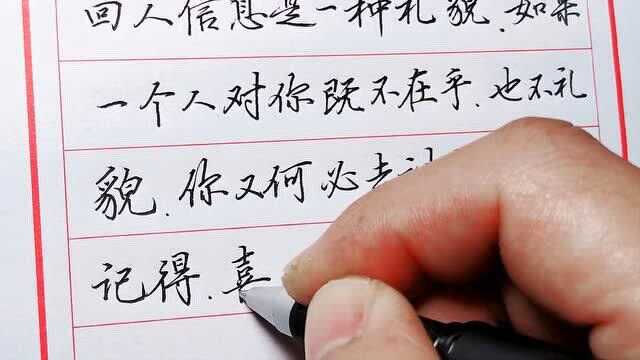 回人信息是一种礼貌.如果
一个人对你既不在乎.也不礼
貌.你又何必去
记得.喜